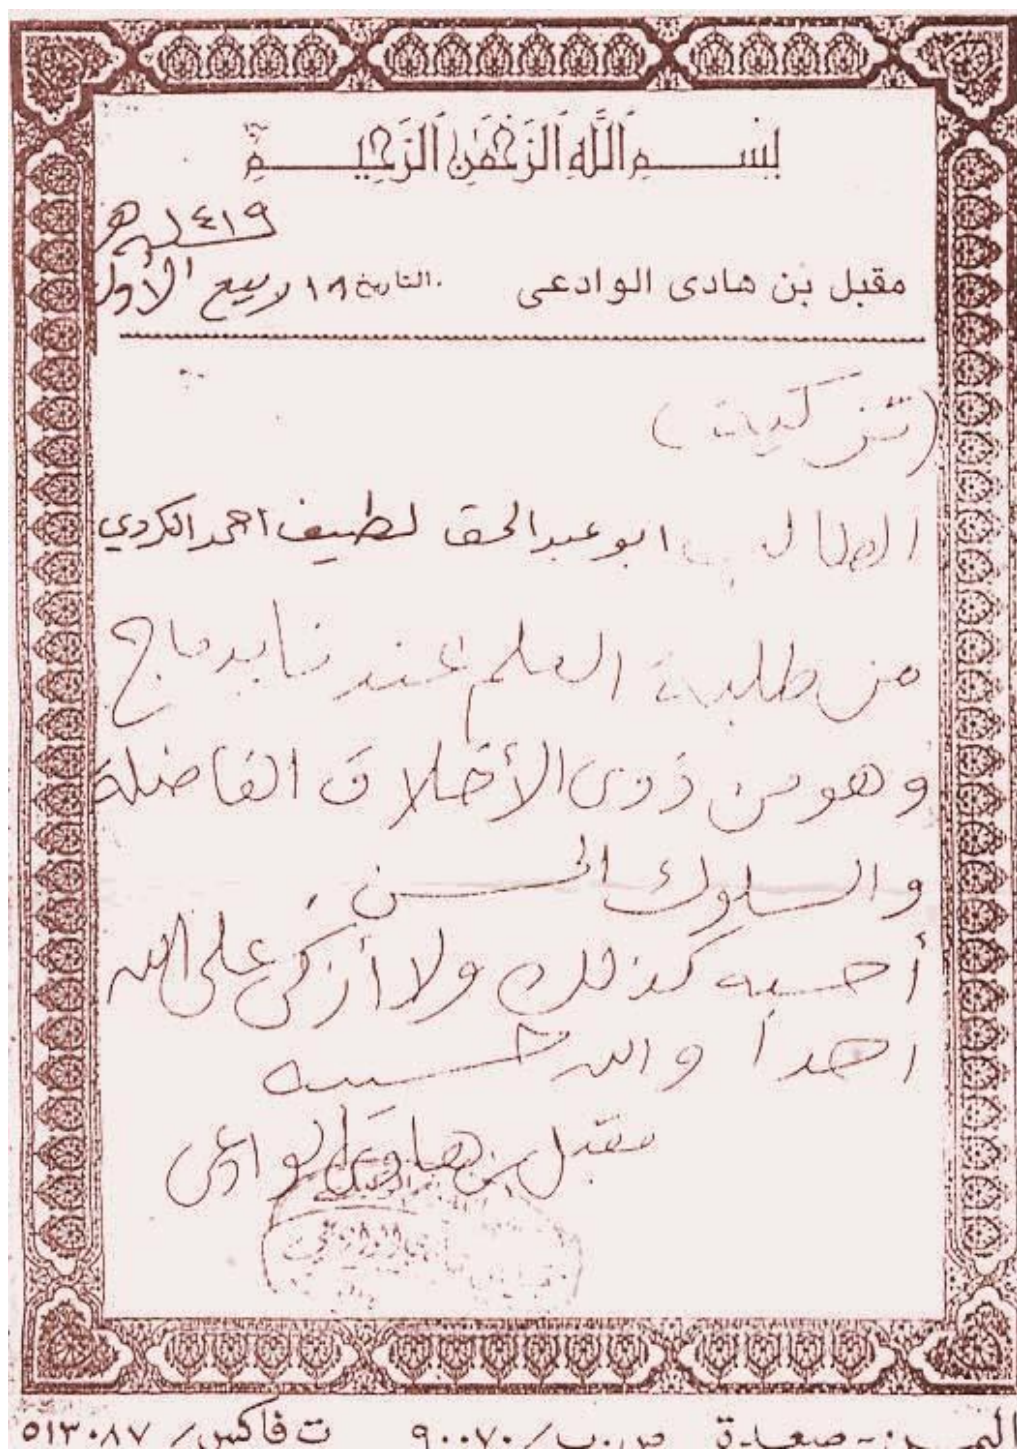 بِسْمِ اللَّهِ الرَّحْمَٰنِ الرَّحِيمِ
١٤١٩ هـ
مقبل بن هادى الوادعى التاريخ ١٨ ربيع الأول
(تزكية)
الطالب ابو عبد الحق لطيف احمد الكردي
من طلبة العلم عندنا بدماج
وهو من ذوى الأخلاق الفاضلة
والسلوك الحسن
أحسبه كذلك ولا أزكى على الله
احدا والله حسيبه
مقبل بن هادي الوادعى
اليمن - صعدة ص.ب/ ٩٠٠٧٠ ت فاكس/ ٥١٣٠٨٧